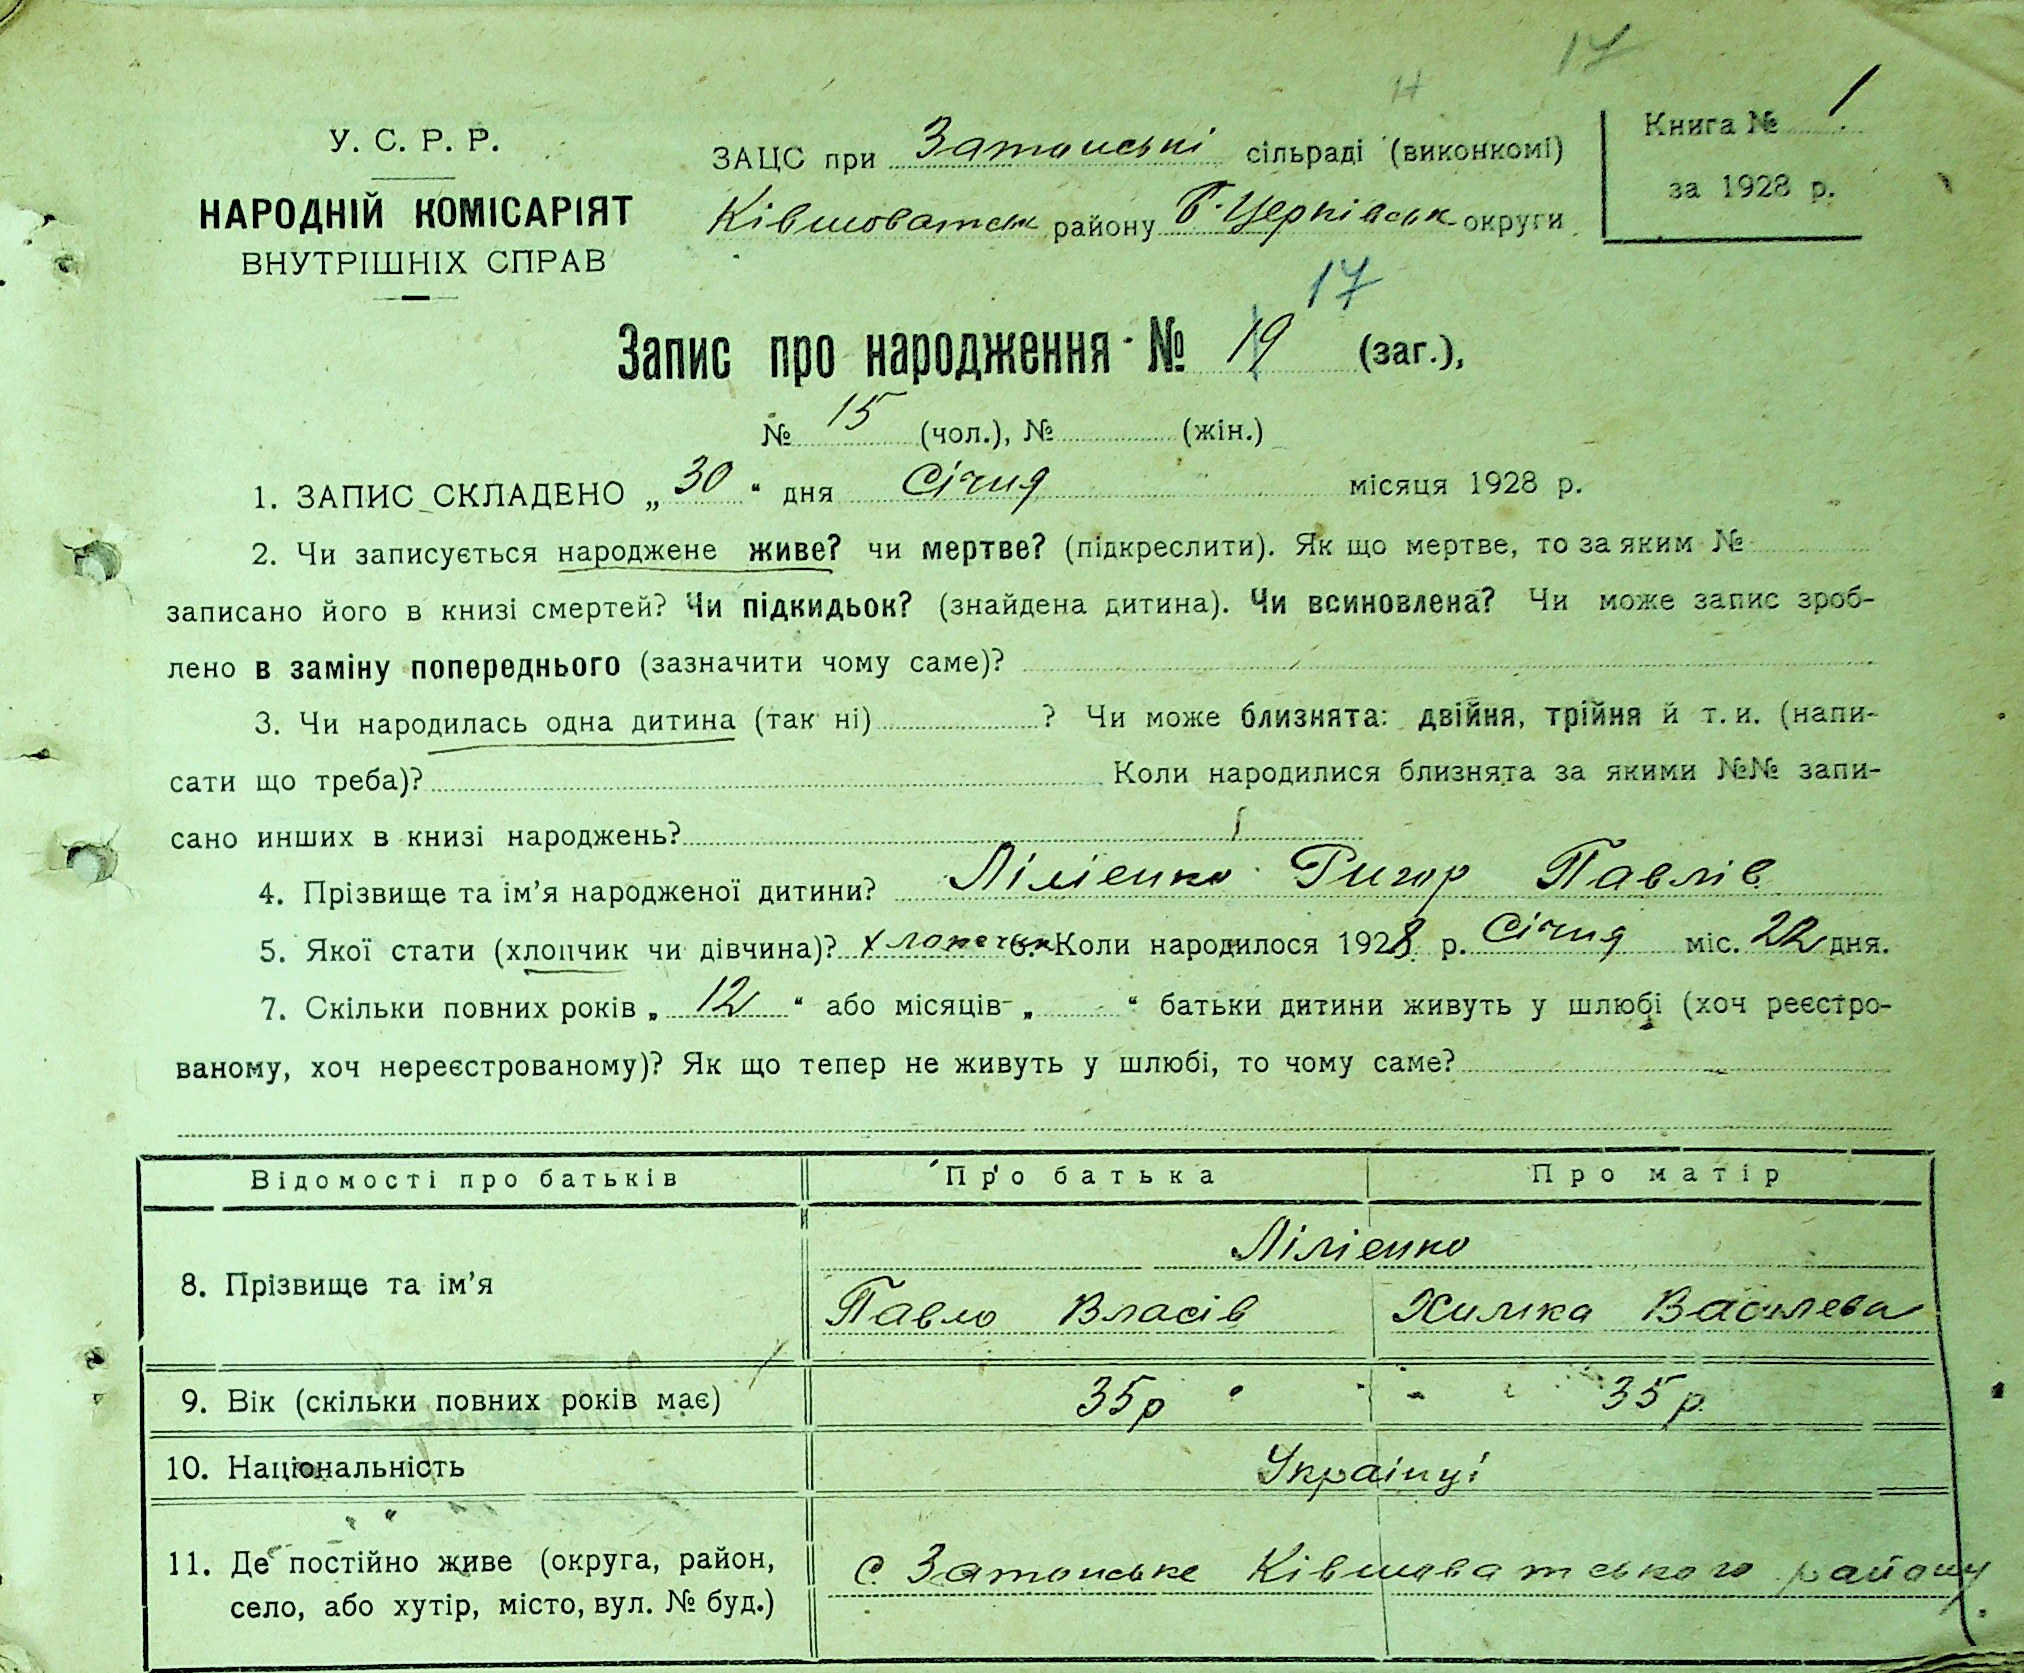 17
н
У. С. Р. Р.
НАРОДНІЙ КОМІСАРІЯТ
ВНУТРІШНІХ СПРАВ
ЗАЦС при Затонські сільраді (виконкомі)
Ківшоватськ району Б-Церківськ округи
Книга № 1
за 1928 р.
17
Запис про народження № 19 (заг.),
№ 15 (чол.), № (жін.)
1. ЗАПИС СКЛАДЕНО „ 30 “ дня Січня місяця 1928 р.
2. Чи записується народжене живе? чи мертве? (підкреслити). Як що мертве, то за яким №
записано його в книзі смертей? Чи підкидьок? (знайдена дитина). Чи всиновлена? Чи може запис зроб-
лено в заміну попереднього (зазначити чому саме)?
3. Чи народилась одна дитина (так ні) ? Чи може близнята: двійня, трійня й т. и. (напи-
сати що треба)? Коли народилися близнята за якими №№ запи-
сано инших в книзі народжень?
4. Прізвище та ім’я народженої дитини? Лілієнко Ригор Павлів
5. Якої стати (хлопчик чи дівчина)? Хлопчик 6. Коли народилося 1928 р. Січня міс. 22 дня.
7. Скільки повних років „ 12 “ або місяців „ “ батьки дитини живуть у шлюбі (хоч реєстро-
ваному, хоч нереєстрованому)? Як що тепер не живуть у шлюбі, то чому саме?
Відомості про батьків Про батька Про матір
Лілієнко
8. Прізвище та ім’я Павло Власів Химка Василева
9. Вік (скільки повних років має) 35р 35р.
10. Національність Українці
11. Де постійно живе (округа, район, с. Затонське Ківшоватського району
село, або хутір, місто, вул. № буд.)